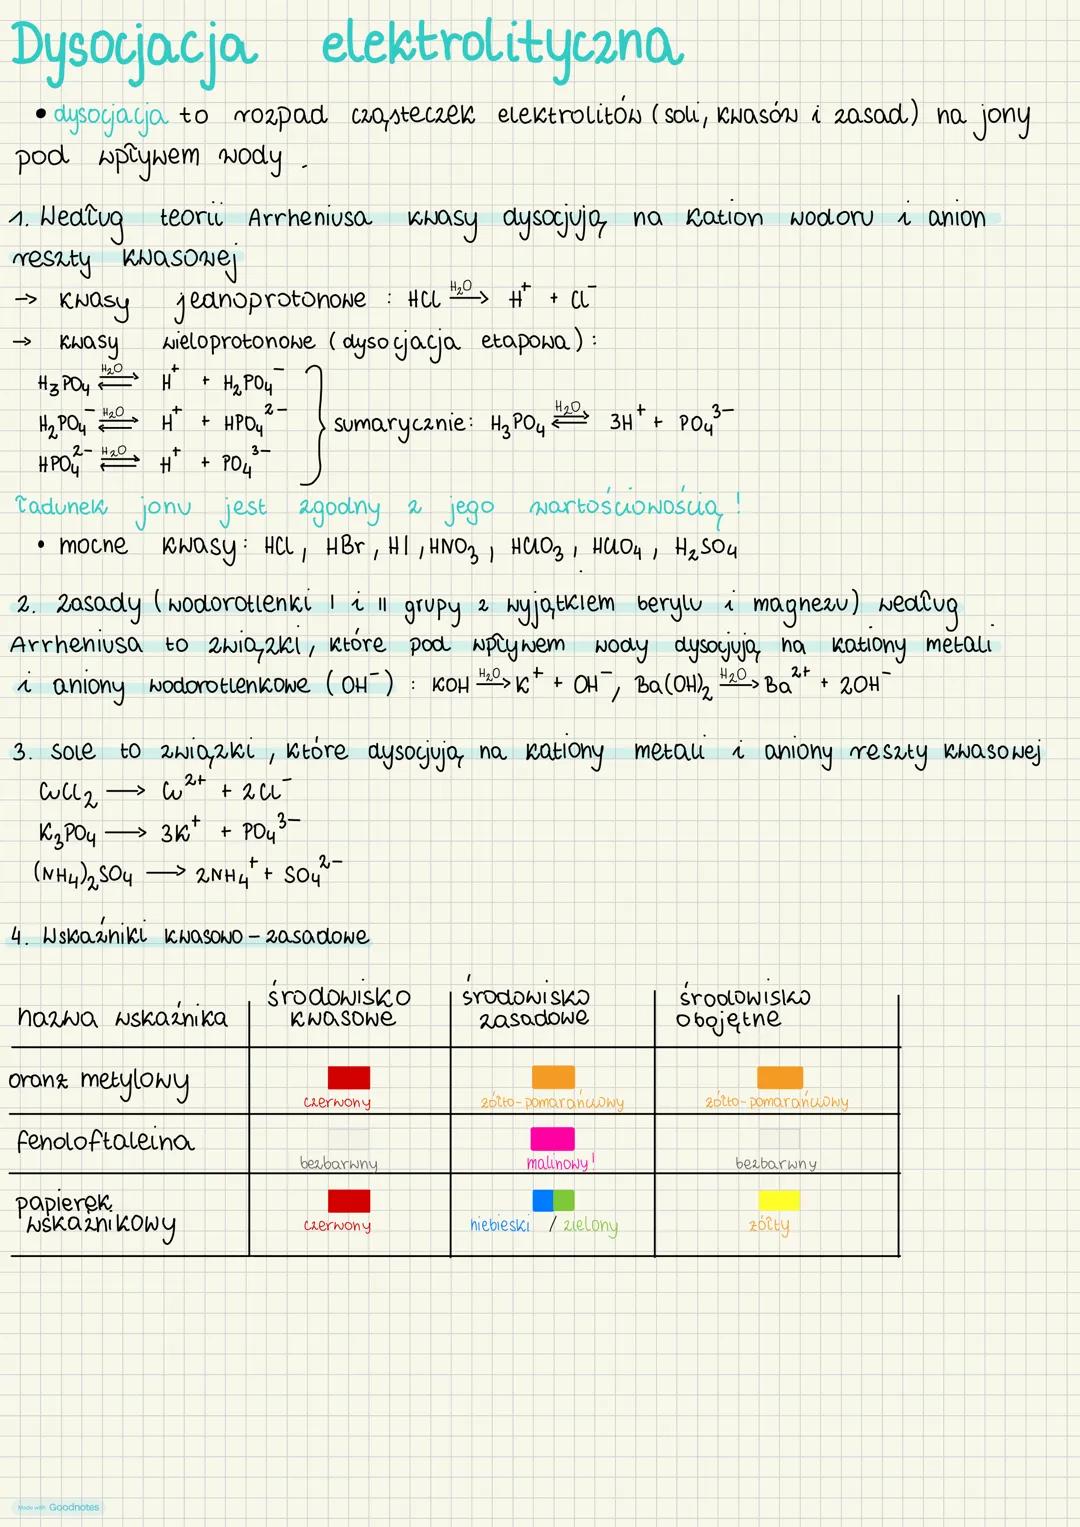 Dysocjacja elektrolityczna
• dysocjacja to rozpad cząsteczek elektrolitów (soli, kwasów i zasad) na jony
pod wpływem wody.
1. Według teorii Arrheniusa kwasy dysocjują na kation wodoru i anion
reszty kwasowej
→ kwasy jednoprotonowe : HCl —H₂O→ H⁺ + Cl⁻
→ kwasy wieloprotonowe (dysocjacja etapowa):
H₃PO₄ ⇌ H₂O H⁺ + H₂PO₄⁻
H₂PO₄⁻ ⇌ H₂O H⁺ + HPO₄²⁻ sumarycznie: H₃PO₄ ⇌ H₂O 3H⁺ + PO₄³⁻
HPO₄²⁻ ⇌ H₂O H⁺ + PO₄³⁻
ładunek jonu jest zgodny z jego wartościowością!
• mocne kwasy: HCl, HBr, HI, HNO₃, HClO₃, HClO₄, H₂SO₄
2. Zasady (wodorotlenki I i II grupy z wyjątkiem berylu i magnezu) według
Arrheniusa to związki, które pod wpływem wody dysocjują na kationy metali
i aniony wodorotlenkowe (OH⁻) : KOH —H₂O→ K⁺ + OH⁻, Ba(OH)₂ —H₂O→ Ba²⁺ + 2OH⁻
3. Sole to związki, które dysocjują na kationy metali i aniony reszty kwasowej
CuCl₂ → Cu²⁺ + 2Cl⁻
K₃PO₄ → 3K⁺ + PO₄³⁻
(NH₄)₂SO₄ → 2NH₄⁺ + SO₄²⁻
4. Wskaźniki kwasowo-zasadowe
nazwa wskaźnika
środowisko kwasowe
środowisko zasadowe
środowisko obojętne
oranż metylowy
czerwony
żółto-pomarańczowy
żółto-pomarańczowy
fenoloftaleina
bezbarwny
malinowy!
bezbarwny
papierek wskaźnikowy
czerwony
niebieski / zielony
żółty
Made with Goodnotes